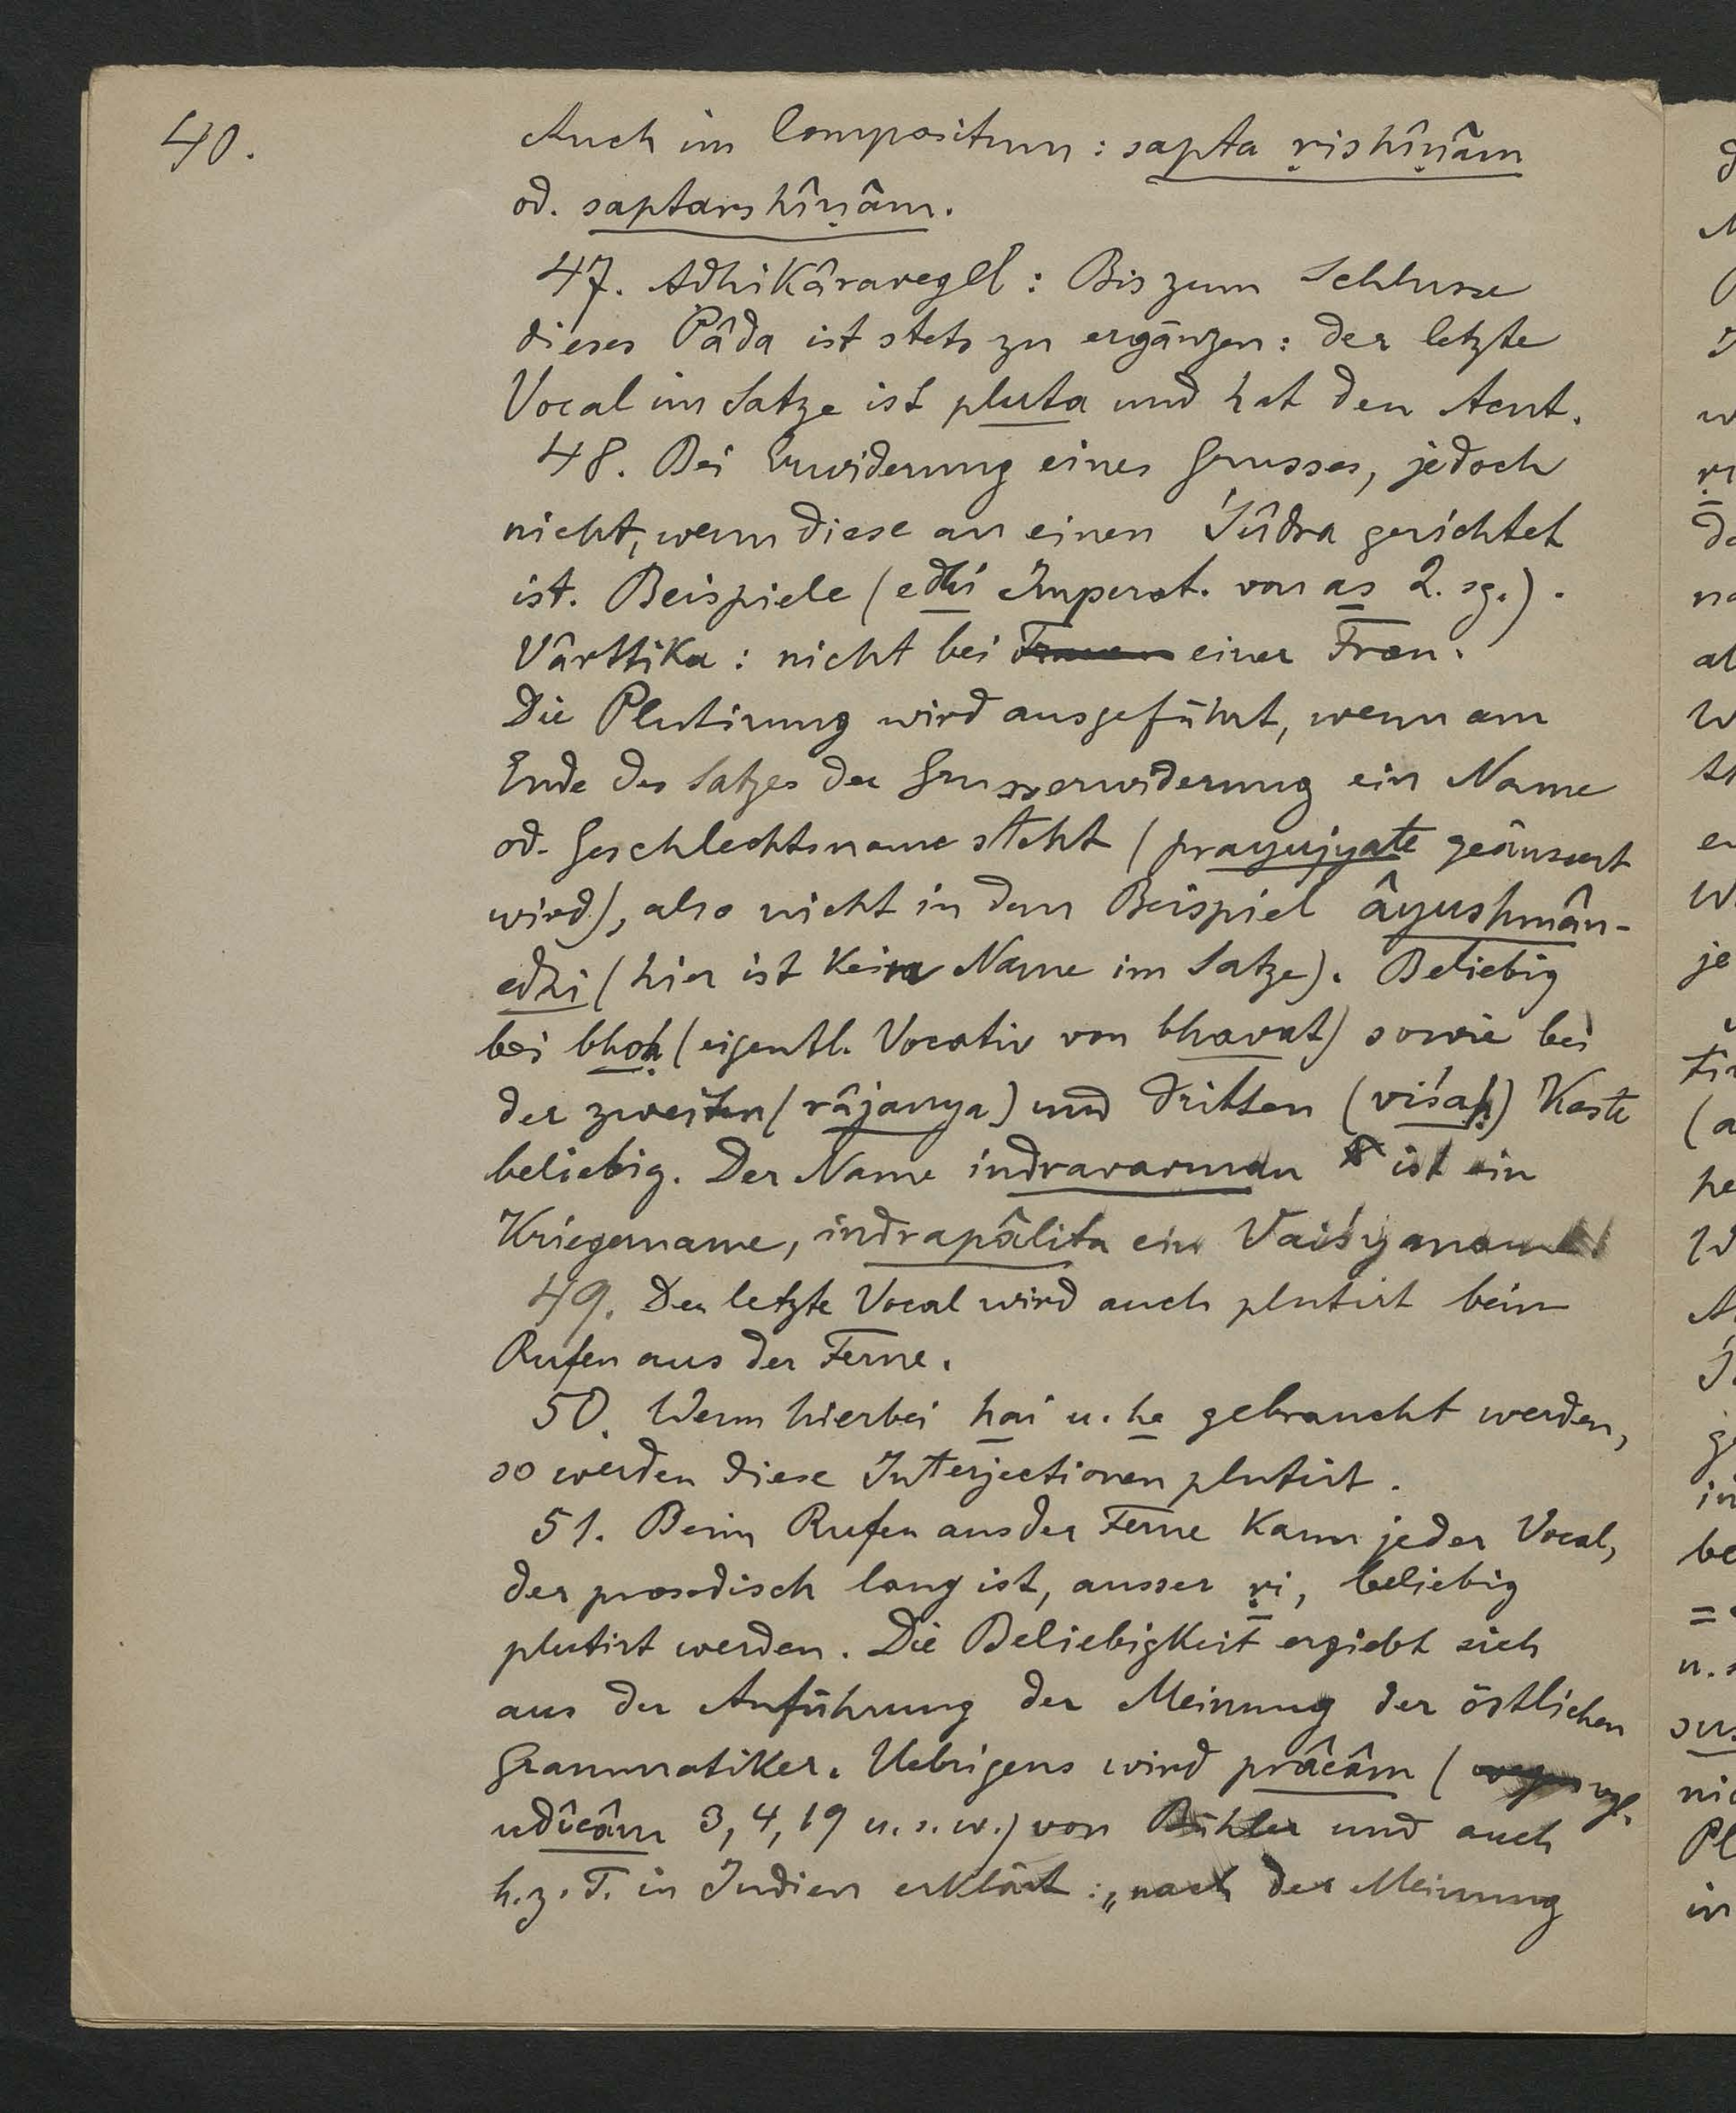 40.
Auch im Compositum: sapta ṛishîṇâm
od. saptarshîṇâm.
47. Adhikâraregel: Bis zum Schlusse
dieses Pâda ist stets zu ergänzen: der letzte
Vocal im Satze ist pluta und hat den Acut.
48. Bei Erwiderung eines Grusses, jedoch
nicht, wenn diese an einen Śûdra gerichtet
ist. Beispiele (edhi Imperat. von as 2. sg.).
Vârttika: nicht bei Frauen einer Frau.
Die Plutirung wird ausgeführt, wenn am
Ende des Satzes der Grusserwiderung ein Name
od. Geschlechtsname steht (prayujyate geäussert
wird), also nicht in dem Beispiel âyushmân-
edhi (hier ist kein Name im Satze). Beliebig
bei bhoḥ (eigentl. Vocativ von bhavat) sowie bei
der zweiten (râjanya) und dritten (viśaḥ) Kaste
beliebig. Der Name indravarman ist ein
Kriegername, indrapâlita ein Vaiśyaname.
49. Der letzte Vocal wird auch plutirt beim
Rufen aus der Ferne.
50. Wenn hierbei hai u. he gebraucht werden,
so werden diese Interjectionen plutirt.
51. Beim Rufen aus der Ferne kann jeder Vocal,
der prosodisch lang ist, ausser ṛi, beliebig
plutirt werden. Die Beliebigkeit ergiebt sich
aus der Anführung der Meinung der östlichen
Grammatiker. Uebrigens wird prâcâm ( vgl.
udîcâm 3, 4, 19 u. s. w.) von Bühler und auch
h. z. T. in Indien erklärt: „nach der Meinung